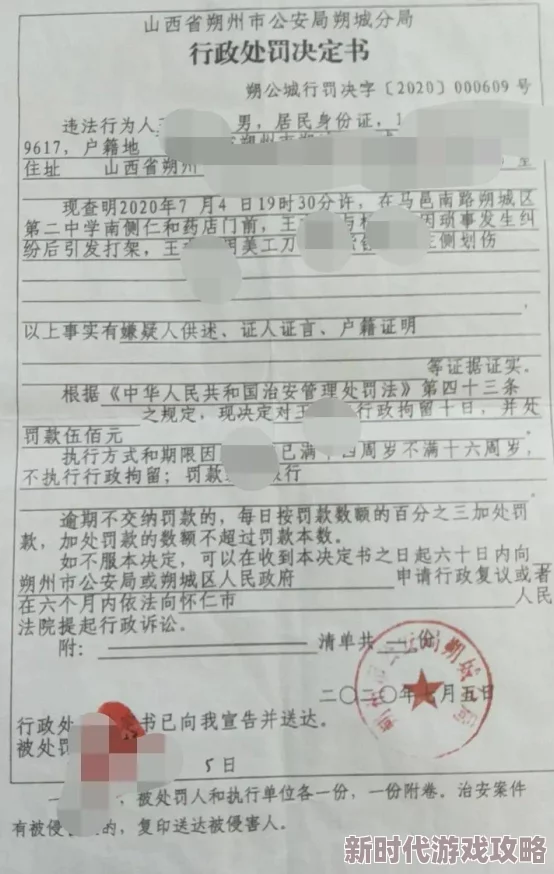 山西省朔州市公安局朔城分局
行政处罚决定书
朔公城行罚决字〔2020〕000609 号
违法行为人 男，居民身份证，
9617，户籍地
住址 山西省朔州
现查明2020年7月4日19时30分许，在马邑南路朔城区
第二中学南侧仁和药店门前，王 因琐事发生纠
纷后引发打架，王 用美工刀 侧划伤
以上事实有嫌疑人供述、证人证言、户籍证明
等证据证实。
根据《中华人民共和国治安管理处罚法》第四十三条
之规定，现决定对王 行政拘留十日，并处
罚款伍佰元
执行方式和期限因 已满十四周岁不满十六周岁，
不执行行政拘留；罚款 行
逾期不交纳罚款的，每日按罚款数额的百分之三加处罚
款，加处罚款的数额不超过罚款本数。
如不服本决定，可以在收到本决定书之日起六十日内向
朔州市公安局或朔城区人民政府 申请行政复议或者
在六个月内依法向怀仁市 人民
法院提起行政诉讼。
附： 清单共 一 份
二〇二〇年七月五日
行政处 书已向我宣告并送达。
被处罚
5日
一 ，被处罚人和执行单位各一份，一份附卷。治安案件
有被侵 的，复印送达被侵害人。
新时代游戏攻略